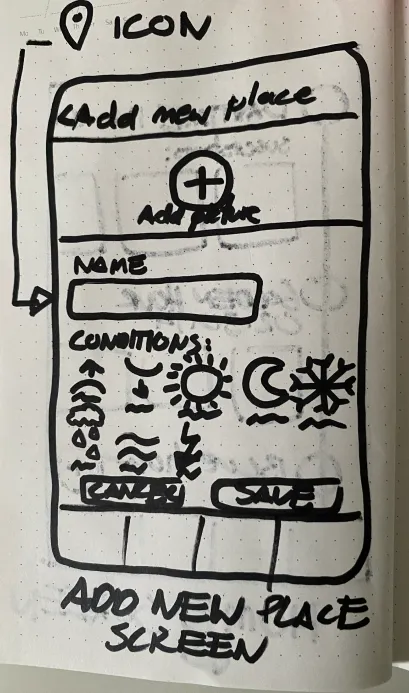 ICON
<Add new place
Add picture
NAME
CONDITIONS:
CANCEL
SAVE
ADD NEW PLACE
SCREEN